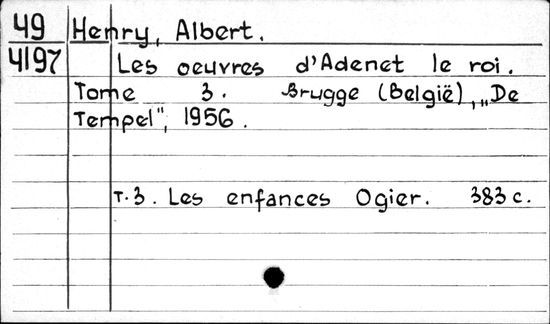 49 Henry, Albert.
4197 Les oeuvres d'Adenet le roi.
Tome 3. Brugge (België), „De
Tempel", 1956.
т.3. Les enfances Ogier. 383 c.